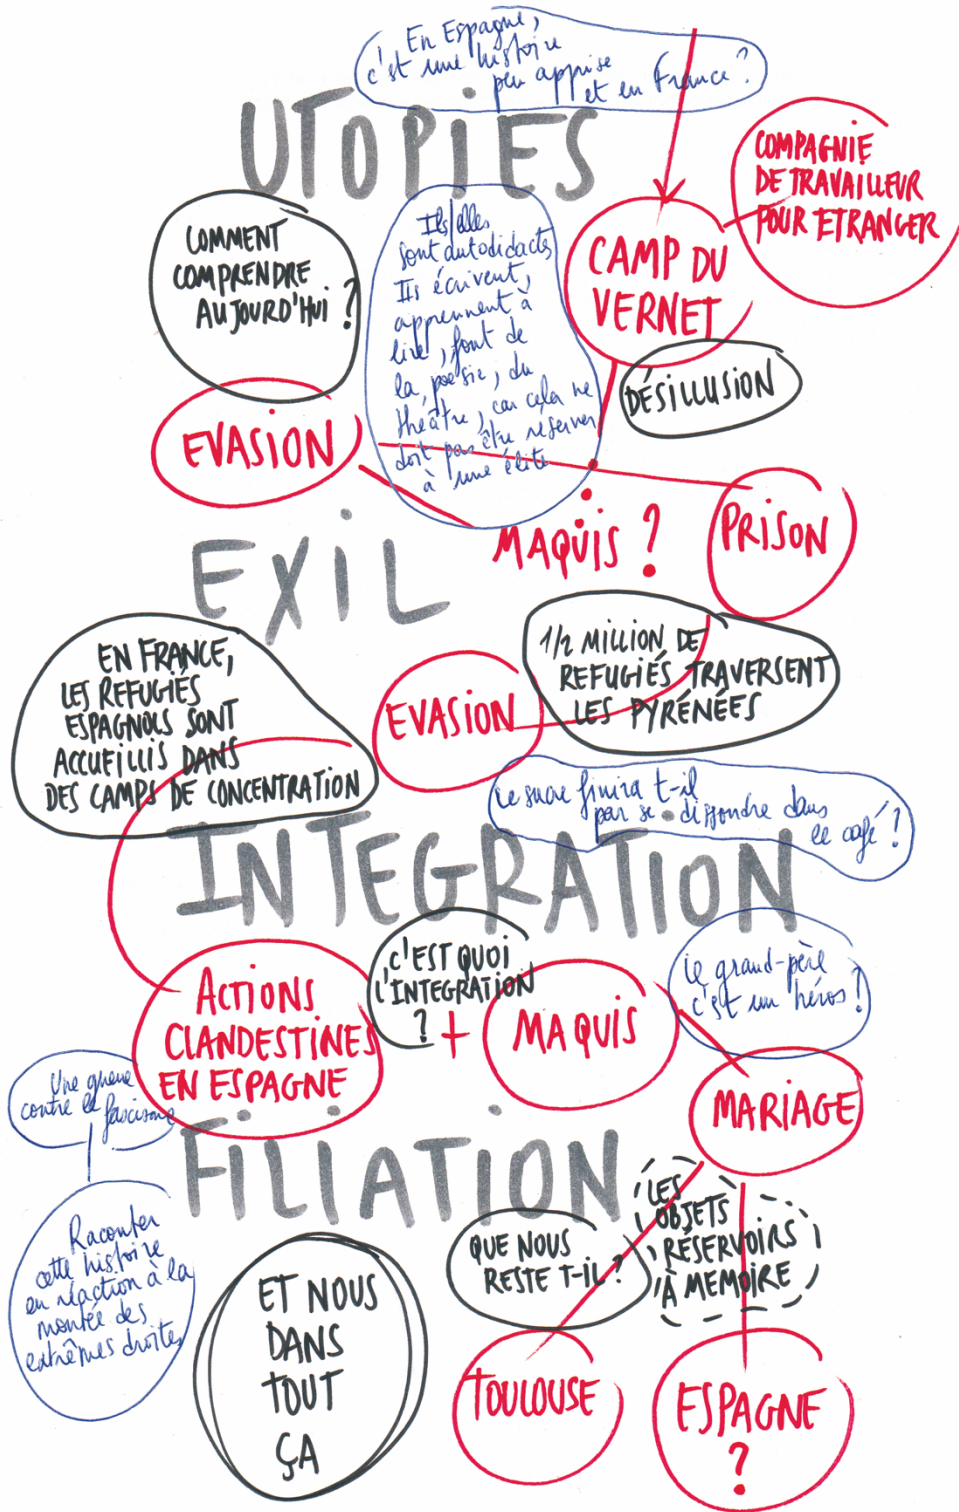 En Espagne,
c'est une histoire
peu apprise
et en France ?
UTOPIES
COMPAGNIE
DE TRAVAILLEUR
POUR ETRANGER
COMMENT
COMPRENDRE
AUJOURD'HUI ?
Ils/elles
sont autodidactes
Ils écrivent,
apprennent à
lire, font de
la poésie, du
théâtre, car cela ne
doit pas être réserver
à une élite
CAMP DU
VERNET
DÉSILLUSION
EVASION
MAQUIS ?
PRISON
EXIL
EN FRANCE,
LES REFUGIÉS
ESPAGNOLS SONT
ACCUEILLIS DANS
DES CAMPS DE CONCENTRATION
EVASION
1/2 MILLION DE
REFUGIÉS TRAVERSENT
LES PYRÉNÉES
Le sucre finira t-il
par se dissoudre dans
le café ?
INTEGRATION
ACTIONS
CLANDESTINES
EN ESPAGNE
C'EST QUOI
L'INTEGRATION
?
+
MAQUIS
Le grand-père
c'est un héros !
MARIAGE
Une guerre
contre le fascisme
FILIATION
Raconter
cette histoire
en réaction à la
montée des
extrêmes droites
ET NOUS
DANS
TOUT
ÇA
QUE NOUS
RESTE T-IL ?
LES
OBJETS
RÉSERVOIRS
À MEMOIRE
TOULOUSE
ESPAGNE
?